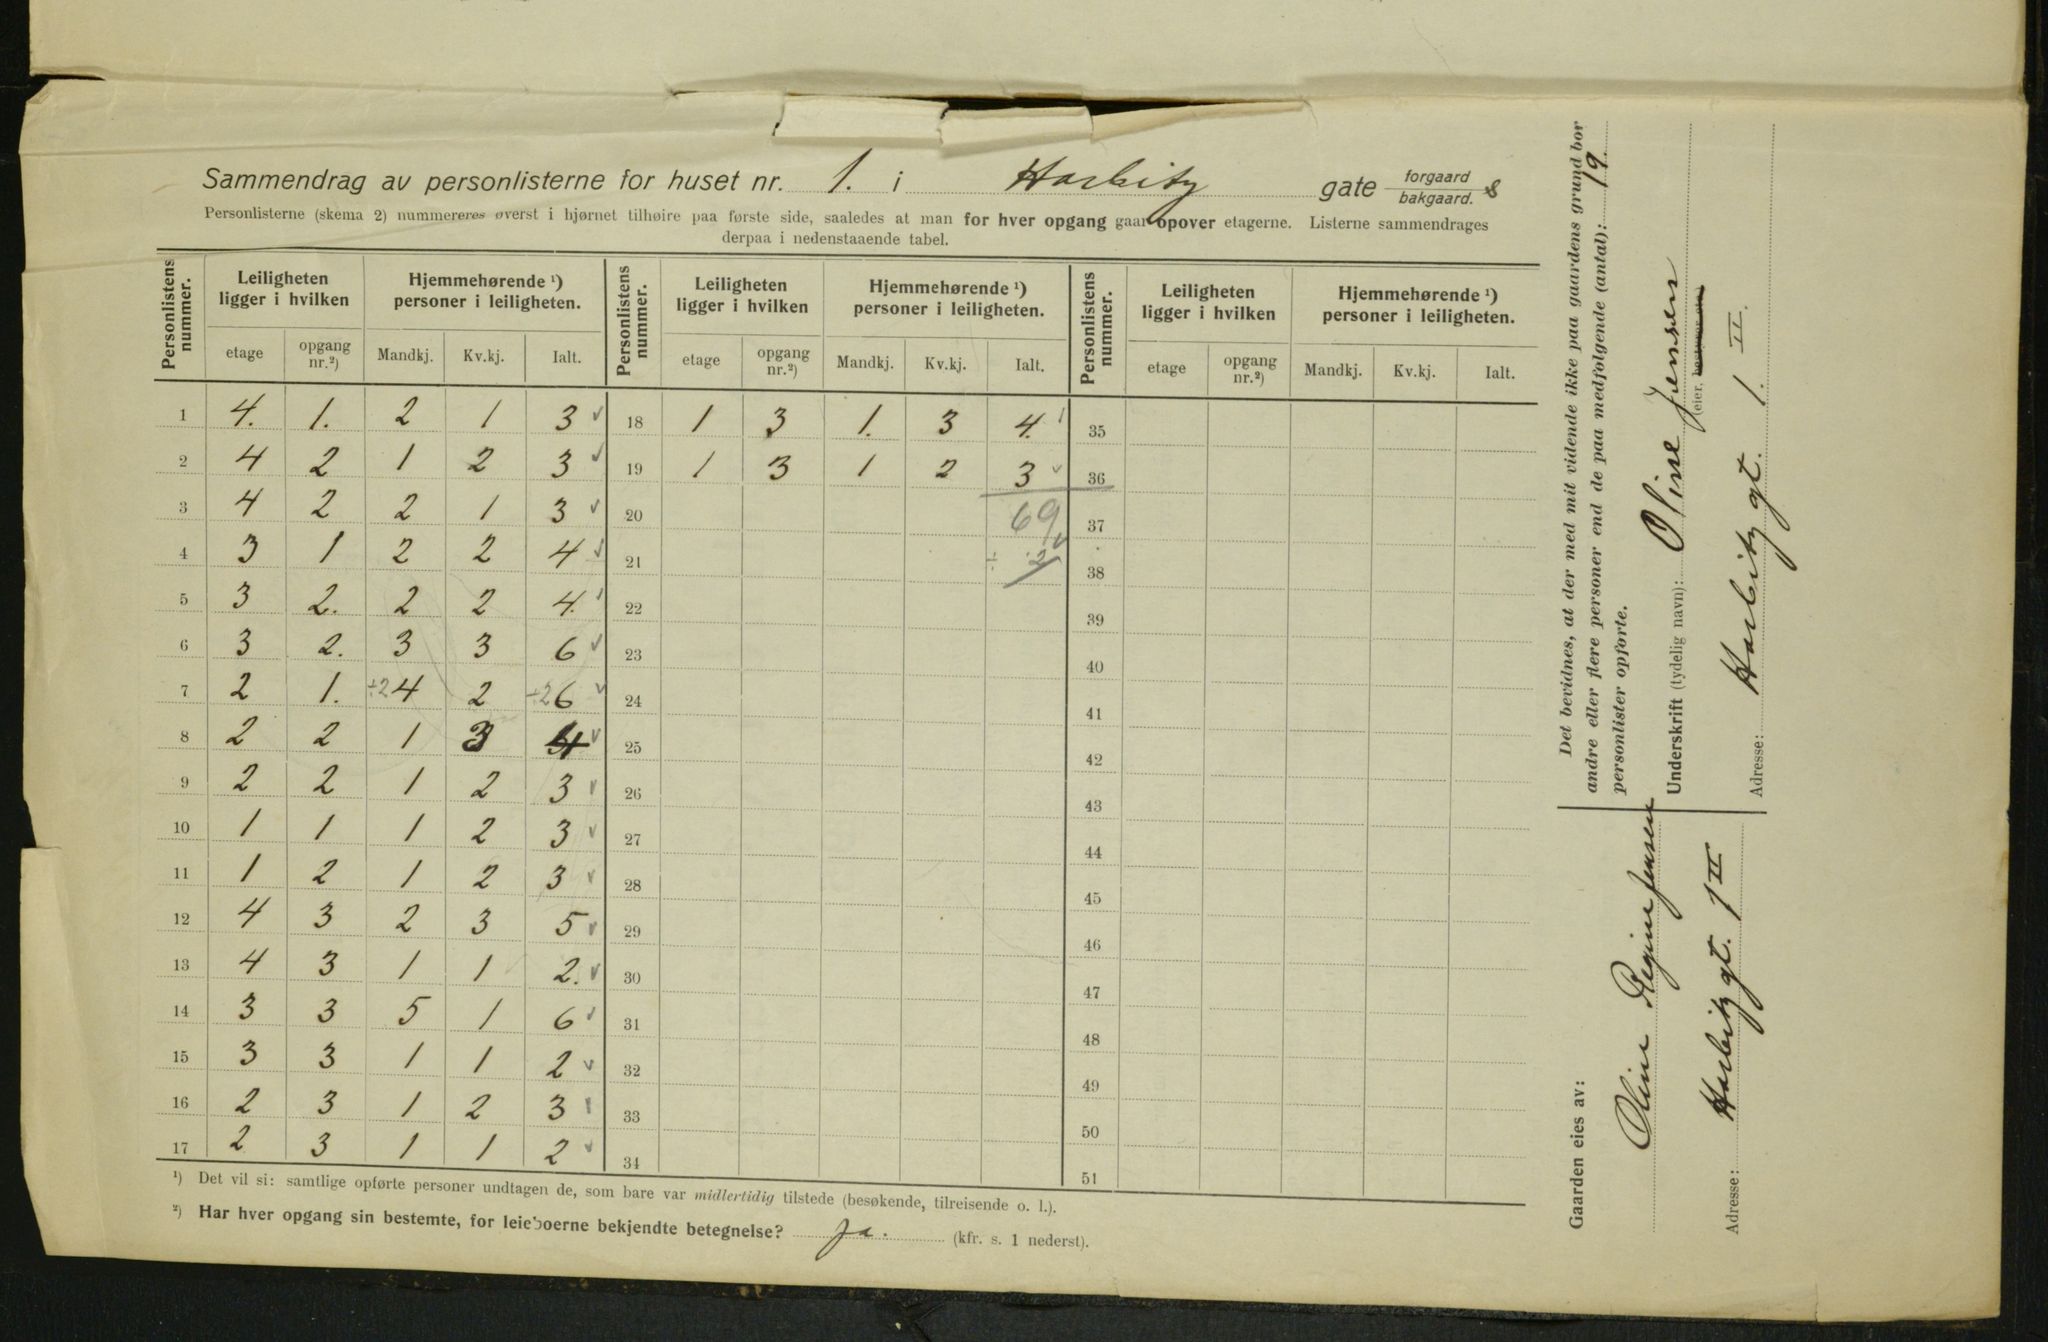 Sammendrag av personlisterne for huset nr. 1. i Harbitz gate forgaard bakgaard. 8
Personlisterne (skema 2) nummereres øverst i hjørnet tilhøire paa første side, saaledes at man for hver opgang gaar opover etagerne. Listerne sammendrages
derpaa i nedenstaaende tabel.
Personlistens nummer. Leiligheten ligger i hvilken Hjemmehørende ¹) personer i leiligheten. Personlistens nummer. Leiligheten ligger i hvilken Hjemmehørende ¹) personer i leiligheten. Personlistens nummer. Leiligheten ligger i hvilken Hjemmehørende ¹) personer i leiligheten.
etage opgang nr.²) Mandkj. Kv.kj. Ialt. etage opgang nr.²) Mandkj. Kv.kj. Ialt. etage opgang nr.²) Mandkj. Kv.kj. Ialt.
1 4. 1. 2 1 3 ✓ 18 1 3 1. 3 4. 35
2 4 2 1 2 3 ✓ 19 1 3 1 2 3 ✓ 36
3 4 2 2 1 3 ✓ 20 69 37
4 3 1 2 2 4 ✓ 21 ÷ 2 38
5 3 2. 2 2 4. 22 39
6 3 2. 3 3 6 ✓ 23 40
7 2 1. ÷2 4 2 ÷2 6 ✓ 24 41
8 2 2 1 3 4 ✓ 25 42
9 2 2 1 2 3 ✓ 26 43
10 1 1 1 2 3 ✓ 27 44
11 1 2 1 2 3 ✓ 28 45
12 4 3 2 3 5 ✓ 29 46
13 4 3 1 1 2. ✓ 30 47
14 3 3 5 1 6 ✓ 31 48
15 3 3 1 1 2 ✓ 32 49
16 2 3 1 2 3 33 50
17 2 3 1 1 2 ✓ 34 51
¹) Det vil si: samtlige opførte personer undtagen de, som bare var midlertidig tilstede (besøkende, tilreisende o. l.).
²) Har hver opgang sin bestemte, for leieboerne bekjendte betegnelse? ja. (kfr. s. 1 nederst).
Det bevidnes, at der med mit vidende ikke paa gaardens grund bor
andre eller flere personer end de paa medfølgende (antal): 19.
personlister opførte.
Underskrift (tydelig navn): Oline Jensen
(eier,
Adresse: Harbitz gt. 1. II.
Gaarden eies av:
Oline Regine Jensen
Adresse: Harbitz gt. 1 II